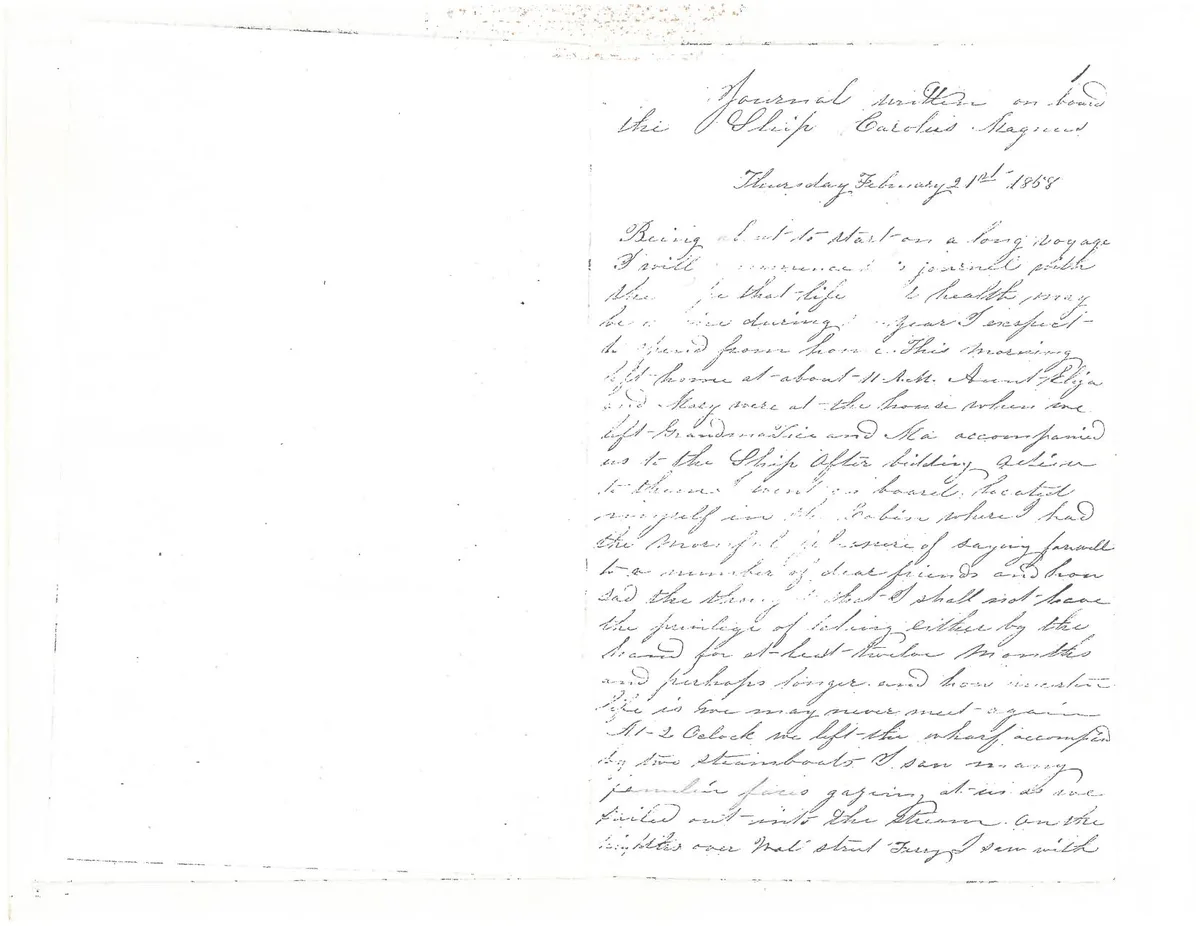 1
Journal written on board
the Ship Carolus Magnus
Thursday February 21st 1858
Being about to start on a long voyage
I will commence journal with
the that life health may
be during year I exspect
to spend from home. This morning
left home at about 11 A.M. Aunt Eliza
and Mary were at the house when we
left Grandma and Ma accompanied
us to the Ship After bidding
to them I went on board located
myself in the Cabin where I had
the pleasure of saying farwell
to a number of dear friends and how
sad the thought that I shall not have
the privilege of taking either by the
hand for at least twelve months
and perhaps longer and how
life is we may never meet again
At 2 Oclock we left the wharf
by two steamboats I saw many
faces gazing at us as we
sailed out into the stream. On the
over Wall street Ferry I saw with